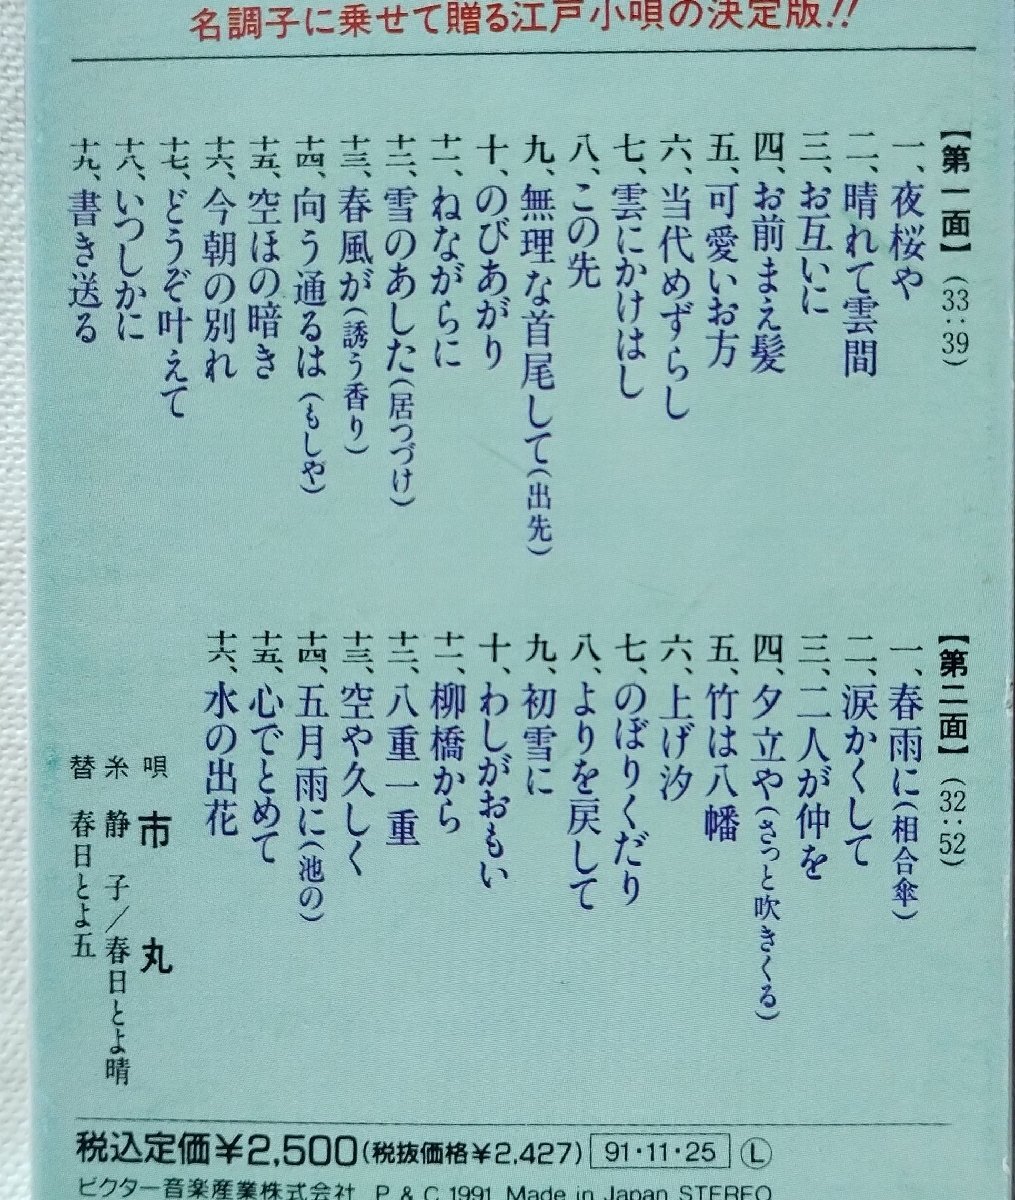 名調子に乗せて贈る江戸小唄の決定版!!
【第一面】(33:39)
一、夜桜や
二、晴れて雲間
三、お互いに
四、お前まえ髪
五、可愛いお方
六、当代めずらし
七、雲にかけはし
八、この先
九、無理な首尾して(出先)
十、のびあがり
十一、ねながらに
十二、雪のあした(居つづけ)
十三、春風が(誘う香り)
十四、向う通るは(もしや)
十五、空ほの暗き
十六、今朝の別れ
十七、どうぞ叶えて
十八、いつしかに
十九、書き送る
【第二面】(32:52)
一、春雨に(相合傘)
二、涙かくして
三、二人が仲を
四、夕立や(さっと吹きくる)
五、竹は八幡
六、上げ汐
七、のぼりくだり
八、よりを戻して
九、初雪に
十、わしがおもい
十一、柳橋から
十二、八重一重
十三、空や久しく
十四、五月雨に(池の)
十五、心でとめて
十六、水の出花
唄 市丸
糸 静子/春日とよ晴
替 春日とよ五
税込定価¥2,500(税抜価格¥2,427) 91・11・25 Ⓛ
ビクター音楽産業株式会社 P & C 1991 Made in Japan STEREO